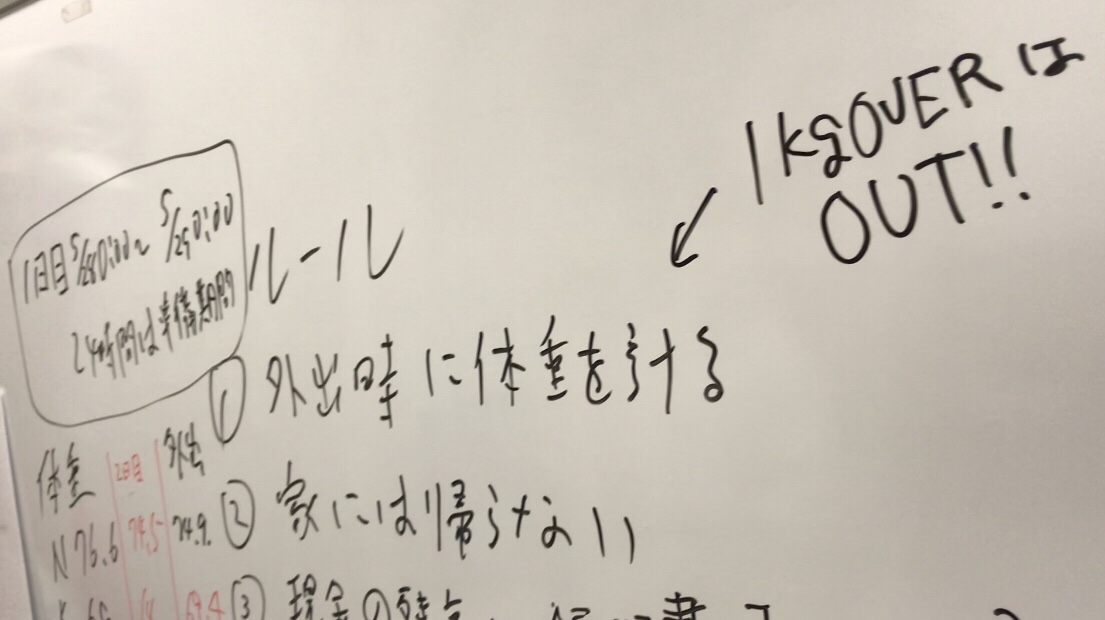 1kgOVERは
OUT!!
1日目5/28 0:00〜5/29 0:00
24時間は準備期間
ルール
① 外出時に体重を計る
体重 2日目 外出
N 76.6 74.5 74.9.
② 家には帰れない
69.4
③ 現金の残高